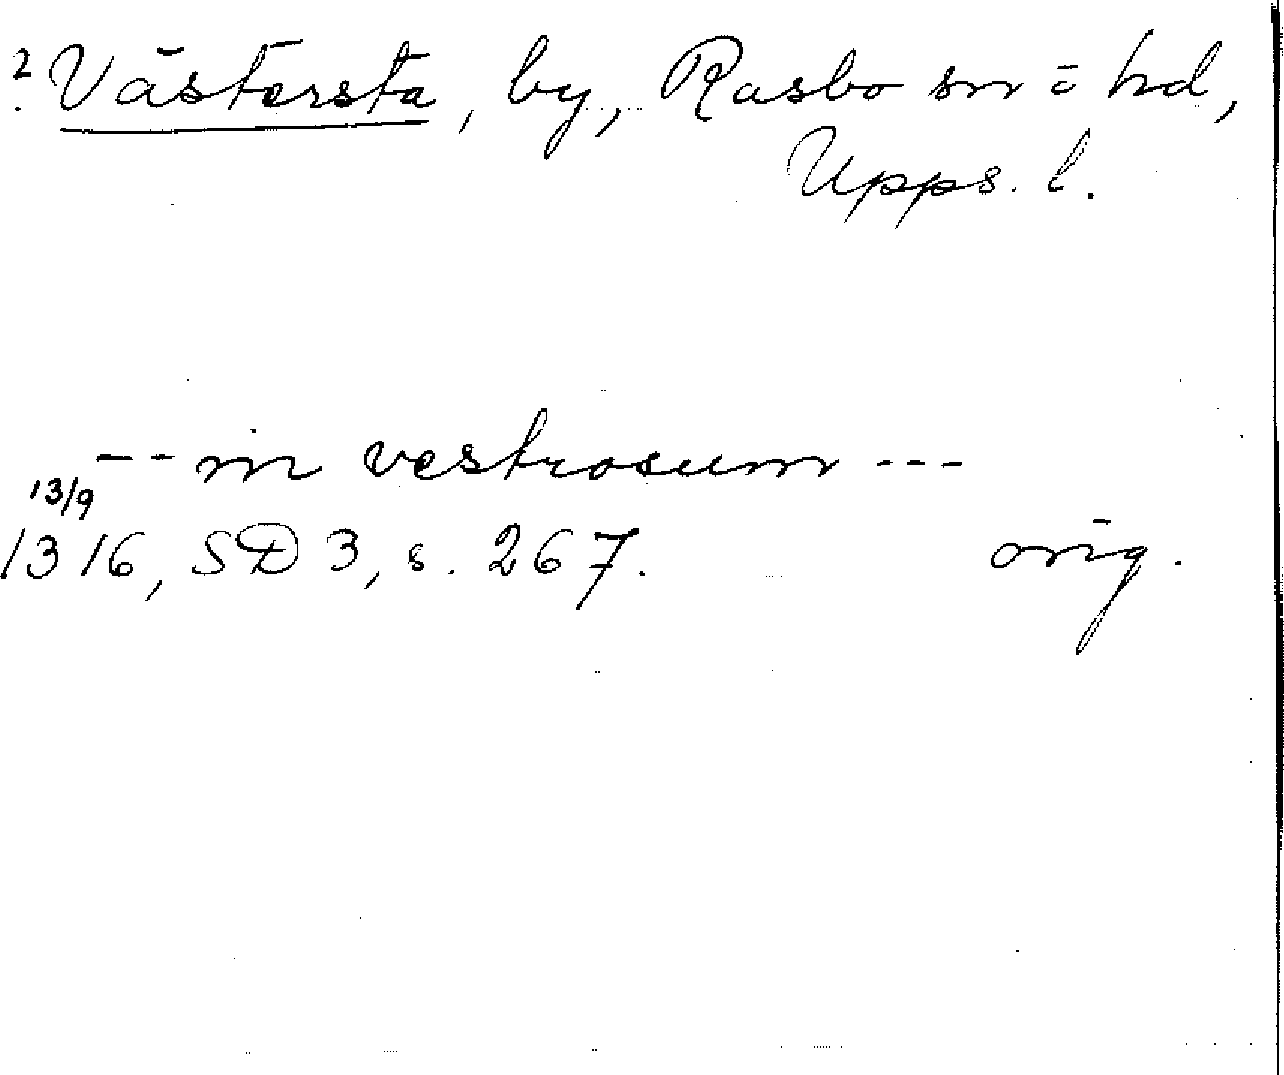 ? Västersta, by, Rasbo sn o hd,
Upps. l.
-- in vestrosum ---
13/9
1316, SD 3, s. 267. orig.